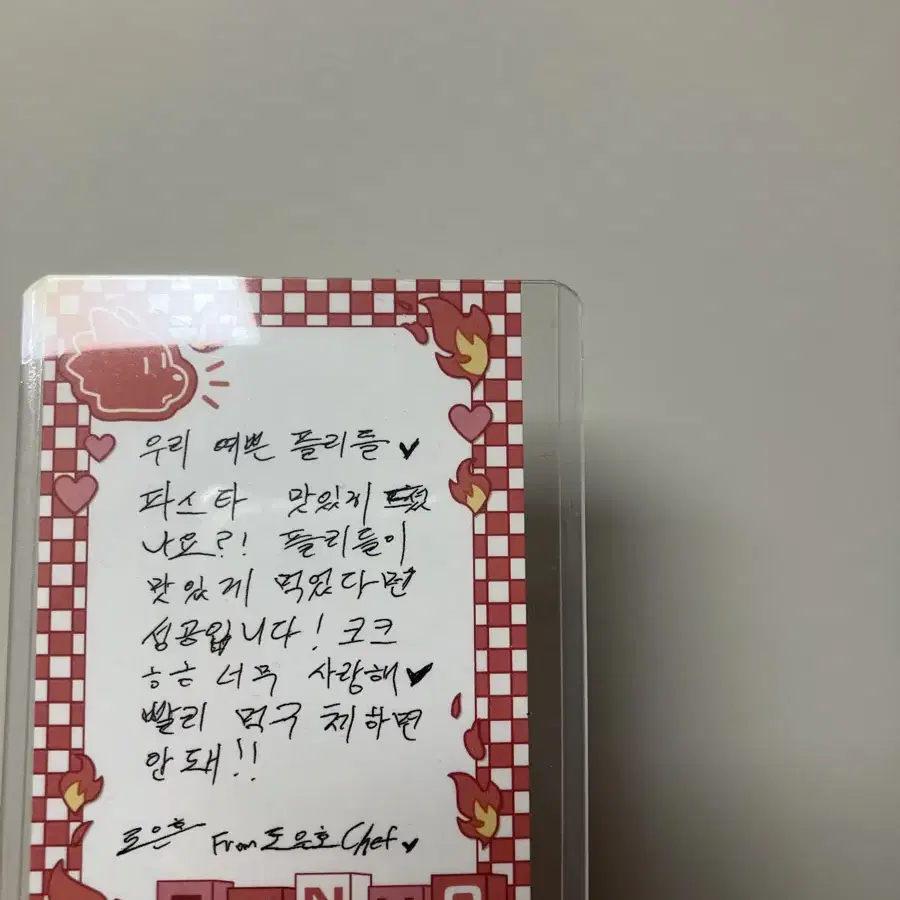 우리 예쁜 플리들 ♥
파스타 맛있게 드셨
나요?! 플리들이
맛있게 먹었다면
성공입니다! 코크
ㅎㅎ 너무 사랑해 ♥
빨리 먹구 체하면
안 돼!!
도은호 From 도은호 Chef ♥